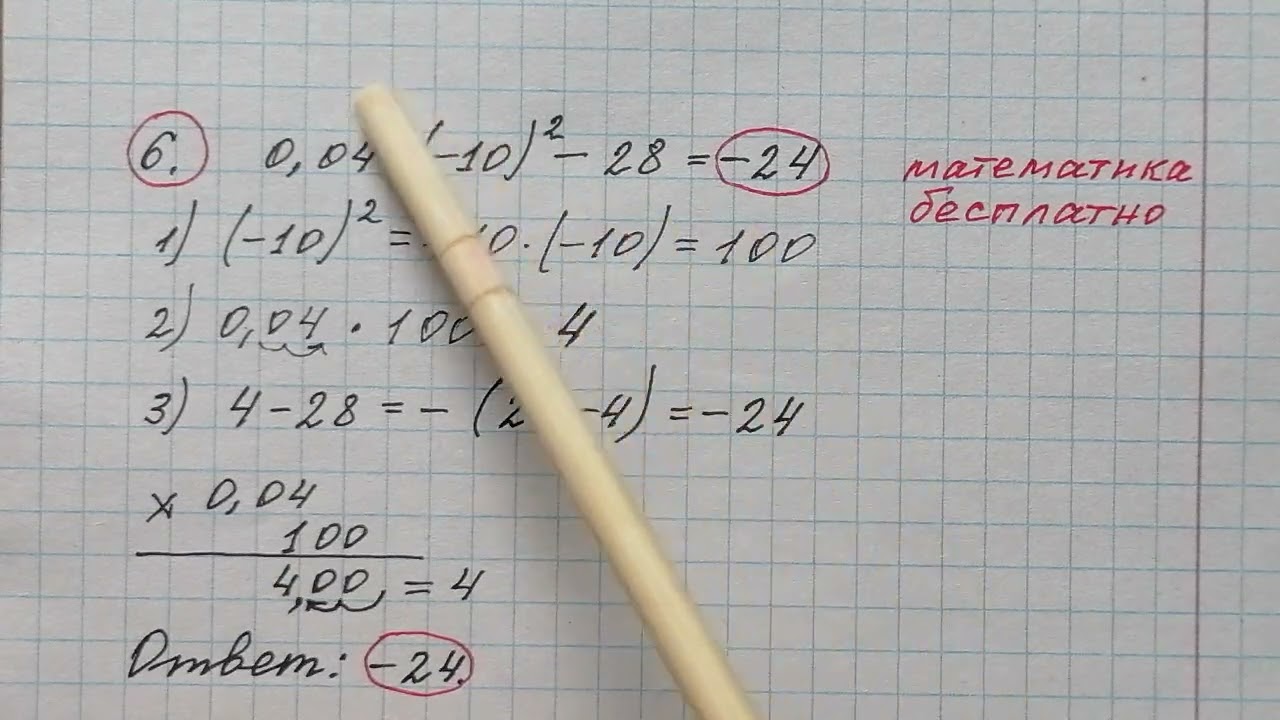 6. 0,04 (-10)² - 28 = -24
математика
бесплатно
1) (-10)² = 10·(-10) = 100
2) 0,04 · 100 4
3) 4 - 28 = - (2 -4) = -24
× 0,04
100
4,00 = 4
Ответ: -24.